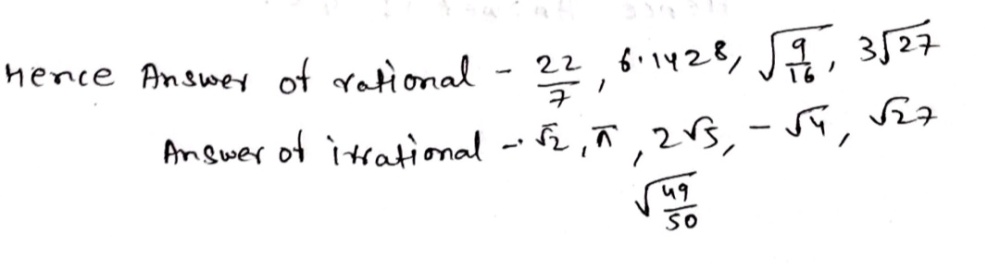 Hence Answer of rational - 22/7, 6.1428, √9/16, 3√27
Answer of irrational - √2, π, 2√5, -√4, √27
√49/50